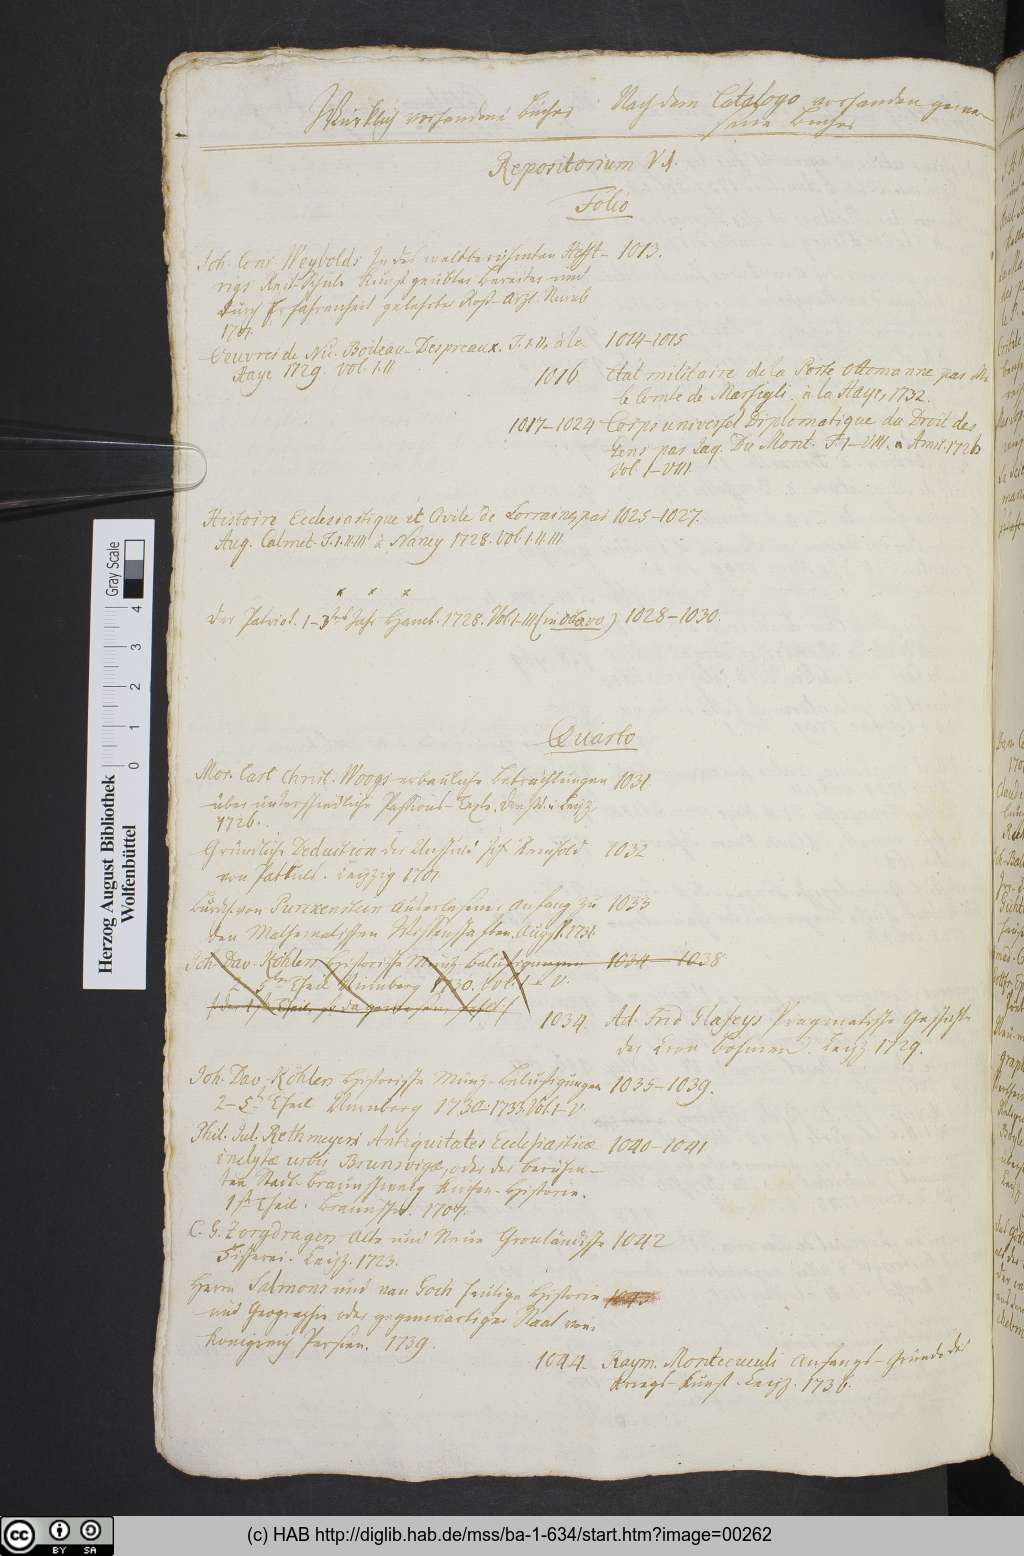 Würklich vorhandene Bücher Nach dem Catalogo vorhanden gewe-
sene Bücher
Repositorium VI.
Folio
Joh. Conr. Weybolds In der weltberühmten 1013.
Reit-Schule Kunst geübter Bereiter und
durch Erfahrenheit gelehrter Roß-Arzt. Nurnb
1701.
Oeuvres de Nic. Boileau-Despreaux. T. I. II. à la 1014-1015
Haye 1729. Vol. I. II
1016 Etat militaire de la Porte Ottomanne par Mr.
le Comte de Marsigli. à la Haye, 1732.
1017-1024 Corps universel Diplomatique du Droit des
Gens par Jaq. Du Mont. T. I-VIII. à Amst. 1726
Vol. I-VIII.
Histoire Ecclesiastique et Civile de Lorraine, par 1025-1027.
Aug. Calmet. T. I. II. III à Nancy 1728. Vol I. II. III
x x x
Der Patriot. 1-3tes Jahr Hamb. 1728. Vol. I-III (in octavo) 1028-1030.
Quarto
Mor. Carl Christ. Woogs erbauliche Betrachtungen 1031
über unterschiedliche Passions-Texte. Leipz.
1726.
Gründliche Deduction der Unschuld Reinhold 1032
von Patkuls. Leipzig 1701
von Purckenstein Auserlesener Anfang zu 1033
den Mathematischen Wissenschaften. Augsp. 1731.
Joh. Dav. Köhlers Historische Münz-Belustigungen 1034-1038
2-5ter Theil Nürnberg 1730. Vol. I-V.
1034. Ad. Frid Glafeys Pragmatische Geschichte
der Cron Böhmen. Leipz 1729.
Joh. Dav. Köhlers Historische Münz-Belustigungen 1035-1039.
2-5ter Theil Nürnberg 1730-1733. Vol. I-V
Phil. Jul. Rethmeyeri Antiquitates Ecclesiasticæ 1040-1041
inclytæ urbis Brunsvigæ, oder der berühm-
ten Stadt-Braunschweig Kirchen-Historie.
1ster Theil. Braunschw. 1707.
C. G. Zorgdragers Alte und Neue Grönländische 1042
Fischerei. Leipz. 1723.
Herrn Salmons und van Goch heutige Historie 1043
und Geographie oder gegenwärtiger Staat vom
Königreich Persien. 1739.
1044. Raym. Montecuculi Anfangs-Gründe der
Kriegs-Kunst. Leipz. 1736.
Gray Scale
0 1 2 3 4
Herzog August Bibliothek
Wolfenbüttel
cc BY SA
(c) HAB http://diglib.hab.de/mss/ba-1-634/start.htm?image=00262